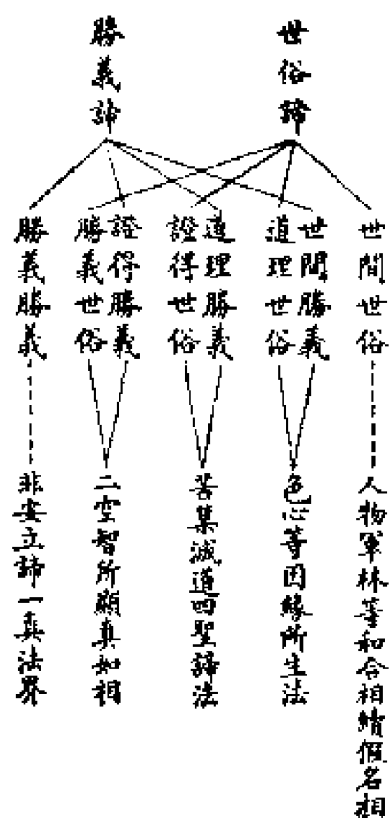 世俗諦
勝義諦
世間世俗
世間勝義
道理世俗
道理勝義
證得世俗
證得勝義
勝義世俗
勝義勝義
人物軍林等和合相續假名相
色心等因緣所生法
苦集滅道四聖諦法
二空智所顯真如相
非安立諦一真法界